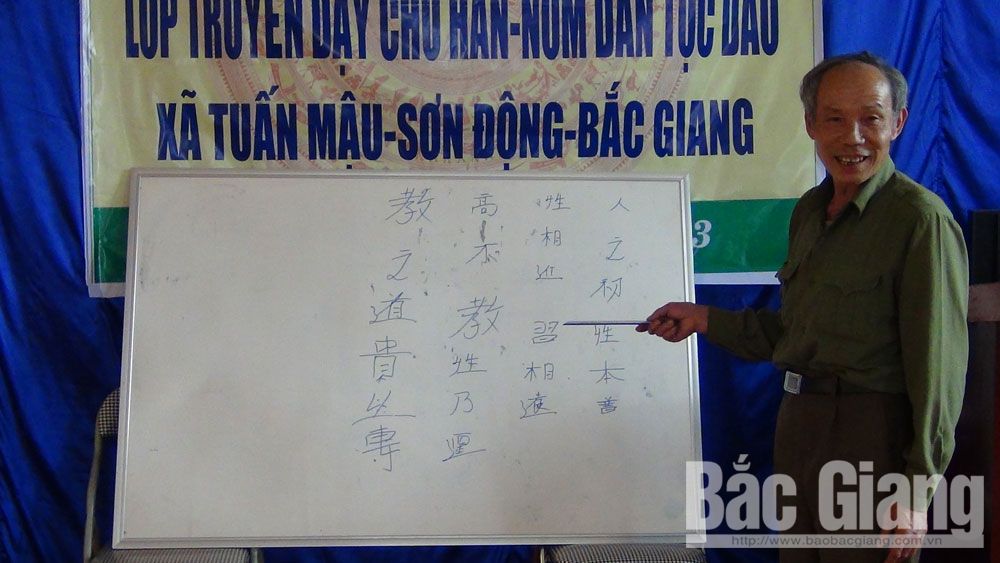 LỚP TRUYỀN DẠY CHỮ HÁN-NÔM DÂN TỘC DAO
XÃ TUẤN MẬU-SƠN ĐỘNG-BẮC GIANG
3
人之初性本善
性相近習相遠
高不教性乃
教之道貴以專
Bắc Giang
http://www.baobacgiang.com.vn